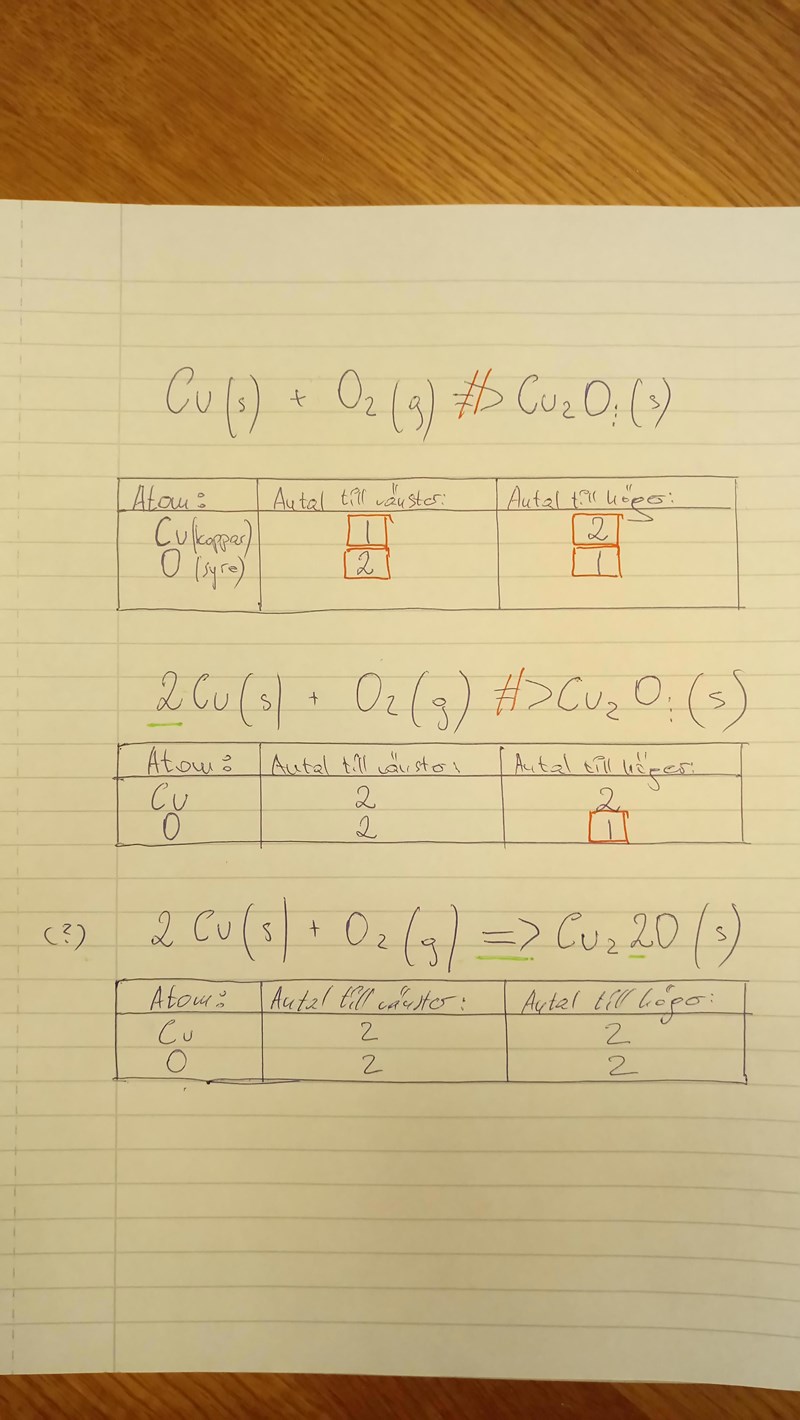 Cu(s) + O₂(g) ≠> Cu₂O(s)
Atom: Antal till vänster: Antal till höger:
Cu(koppar) 1 2
O (syre) 2 1
2Cu(s) + O₂(g) ≠> Cu₂O(s)
Atom: Antal till vänster: Antal till höger:
Cu 2 2
O 2 1
(?) 2 Cu(s) + O₂(g) => Cu₂2O(s)
Atom: Antal till vänster: Antal till höger:
Cu 2 2
O 2 2